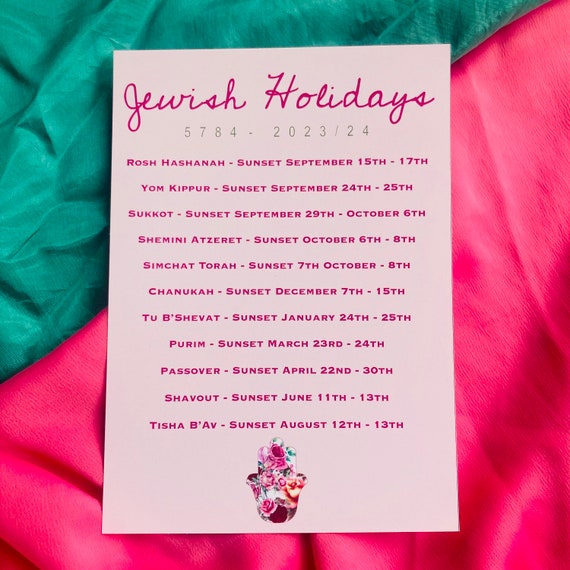 Jewish Holidays
5784- 2023/24
Rosh Hashanah - Sunset September 15th - 17th
Yom Kippur - Sunset September 24th - 25th
Sukkot - Sunset September 29th - October 6th
Shemini Atzeret - Sunset October 6th - 8th
Simchat Torah - Sunset 7th October - 8th
Chanukah - Sunset December 7th - 15th
Tu B'Shevat - Sunset January 24th - 25th
Purim - Sunset March 23rd - 24th
Passover - Sunset April 22nd - 30th
Shavout - Sunset June 11th - 13th
Tisha B'Av - Sunset August 12th - 13th